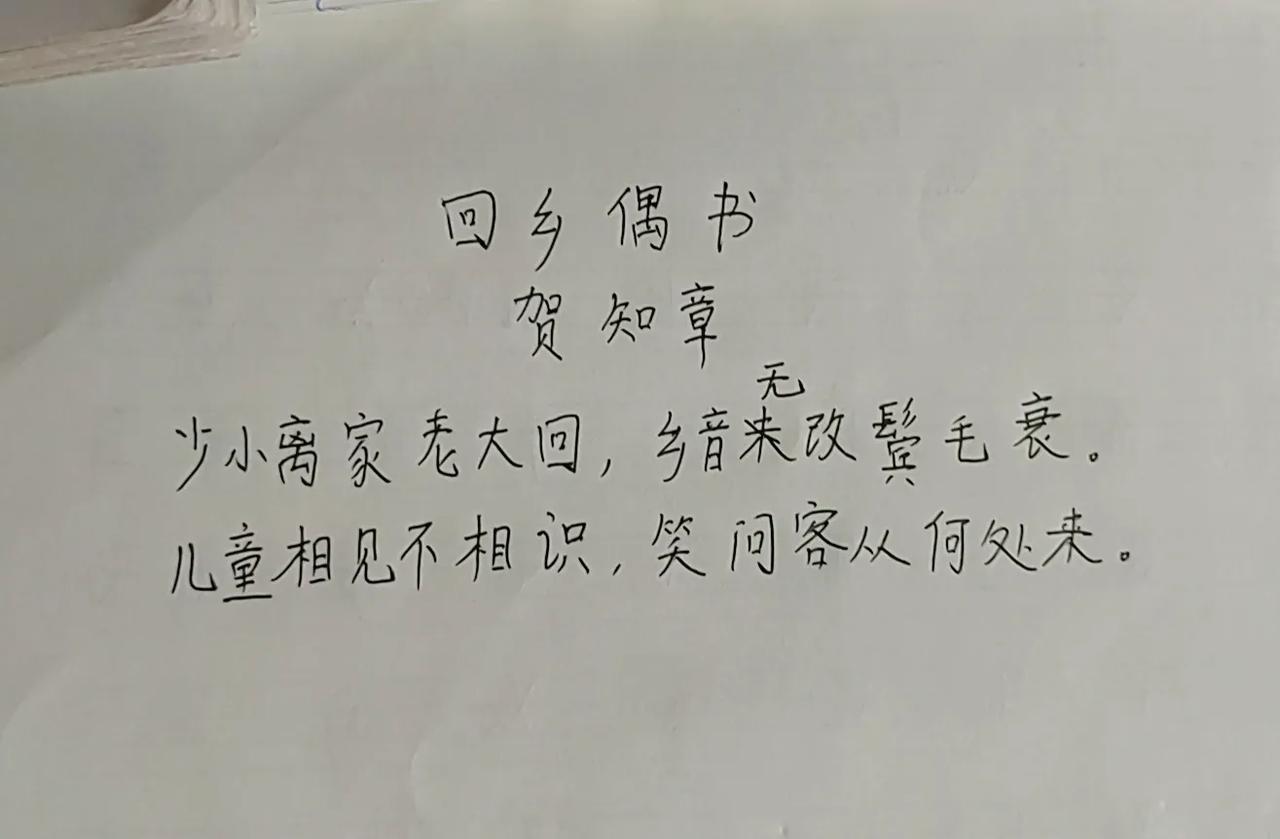 回乡偶书
贺知章
少小离家老大回,乡音无改鬓毛衰。
儿童相见不相识,笑问客从何处来。